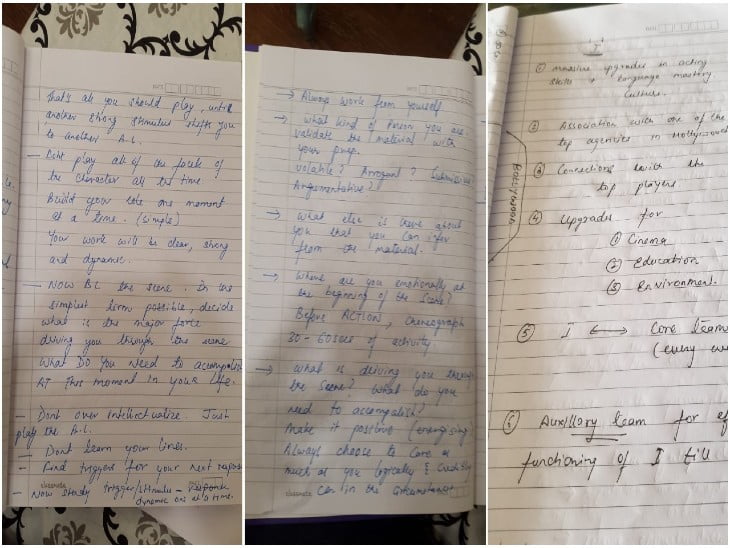 That's all you should play, until
another strong stimulus shifts you
to another A.L.
- Dont play all of the facets of
the character all the time.
Build your role one moment
at a time. (simple)
Your work will be clear, strong
and dynamic.
- Now B.L the scene. In the
simplest term possible, decide
what is the major force
driving you through the scene
What DO YOU need to accomplish
AT this moment in your life.
- Dont over intellectualize. Just
play the A.L.
- Dont learn your lines.
- Find triggers for your next response
- Now study trigger/stimulus - response
dynamic one at a time.
DATE
→ Always work from yourself
→ What kind of Person you are.
validate the material with
your prep.
volatile? Arrogant? Submissive
Argumentative?
→ What else is true about
you that you can infer
from the material.
→ Where are you emotionally at
the beginning of the scene?
Before ACTION, Choreograph
30 - 60 secs of activity
→ What is driving you through
the scene? What do you
need to accomplish?
Make it positive (energising)
Always choose to care as
much as you logically & credibly
can in the circumstances
classmate
DATE
I
① Massive upgrades in acting
skills + Language mastery
Culture.
② Association with one of the
top agencies in Hollywood
③ Connections with the
top players
Bollywood
④ Upgrades for
① Cinema
② Education
③ Environment.
⑤ I ⟷ Core team
(every
⑥ Auxillary team for ef
functioning of I till